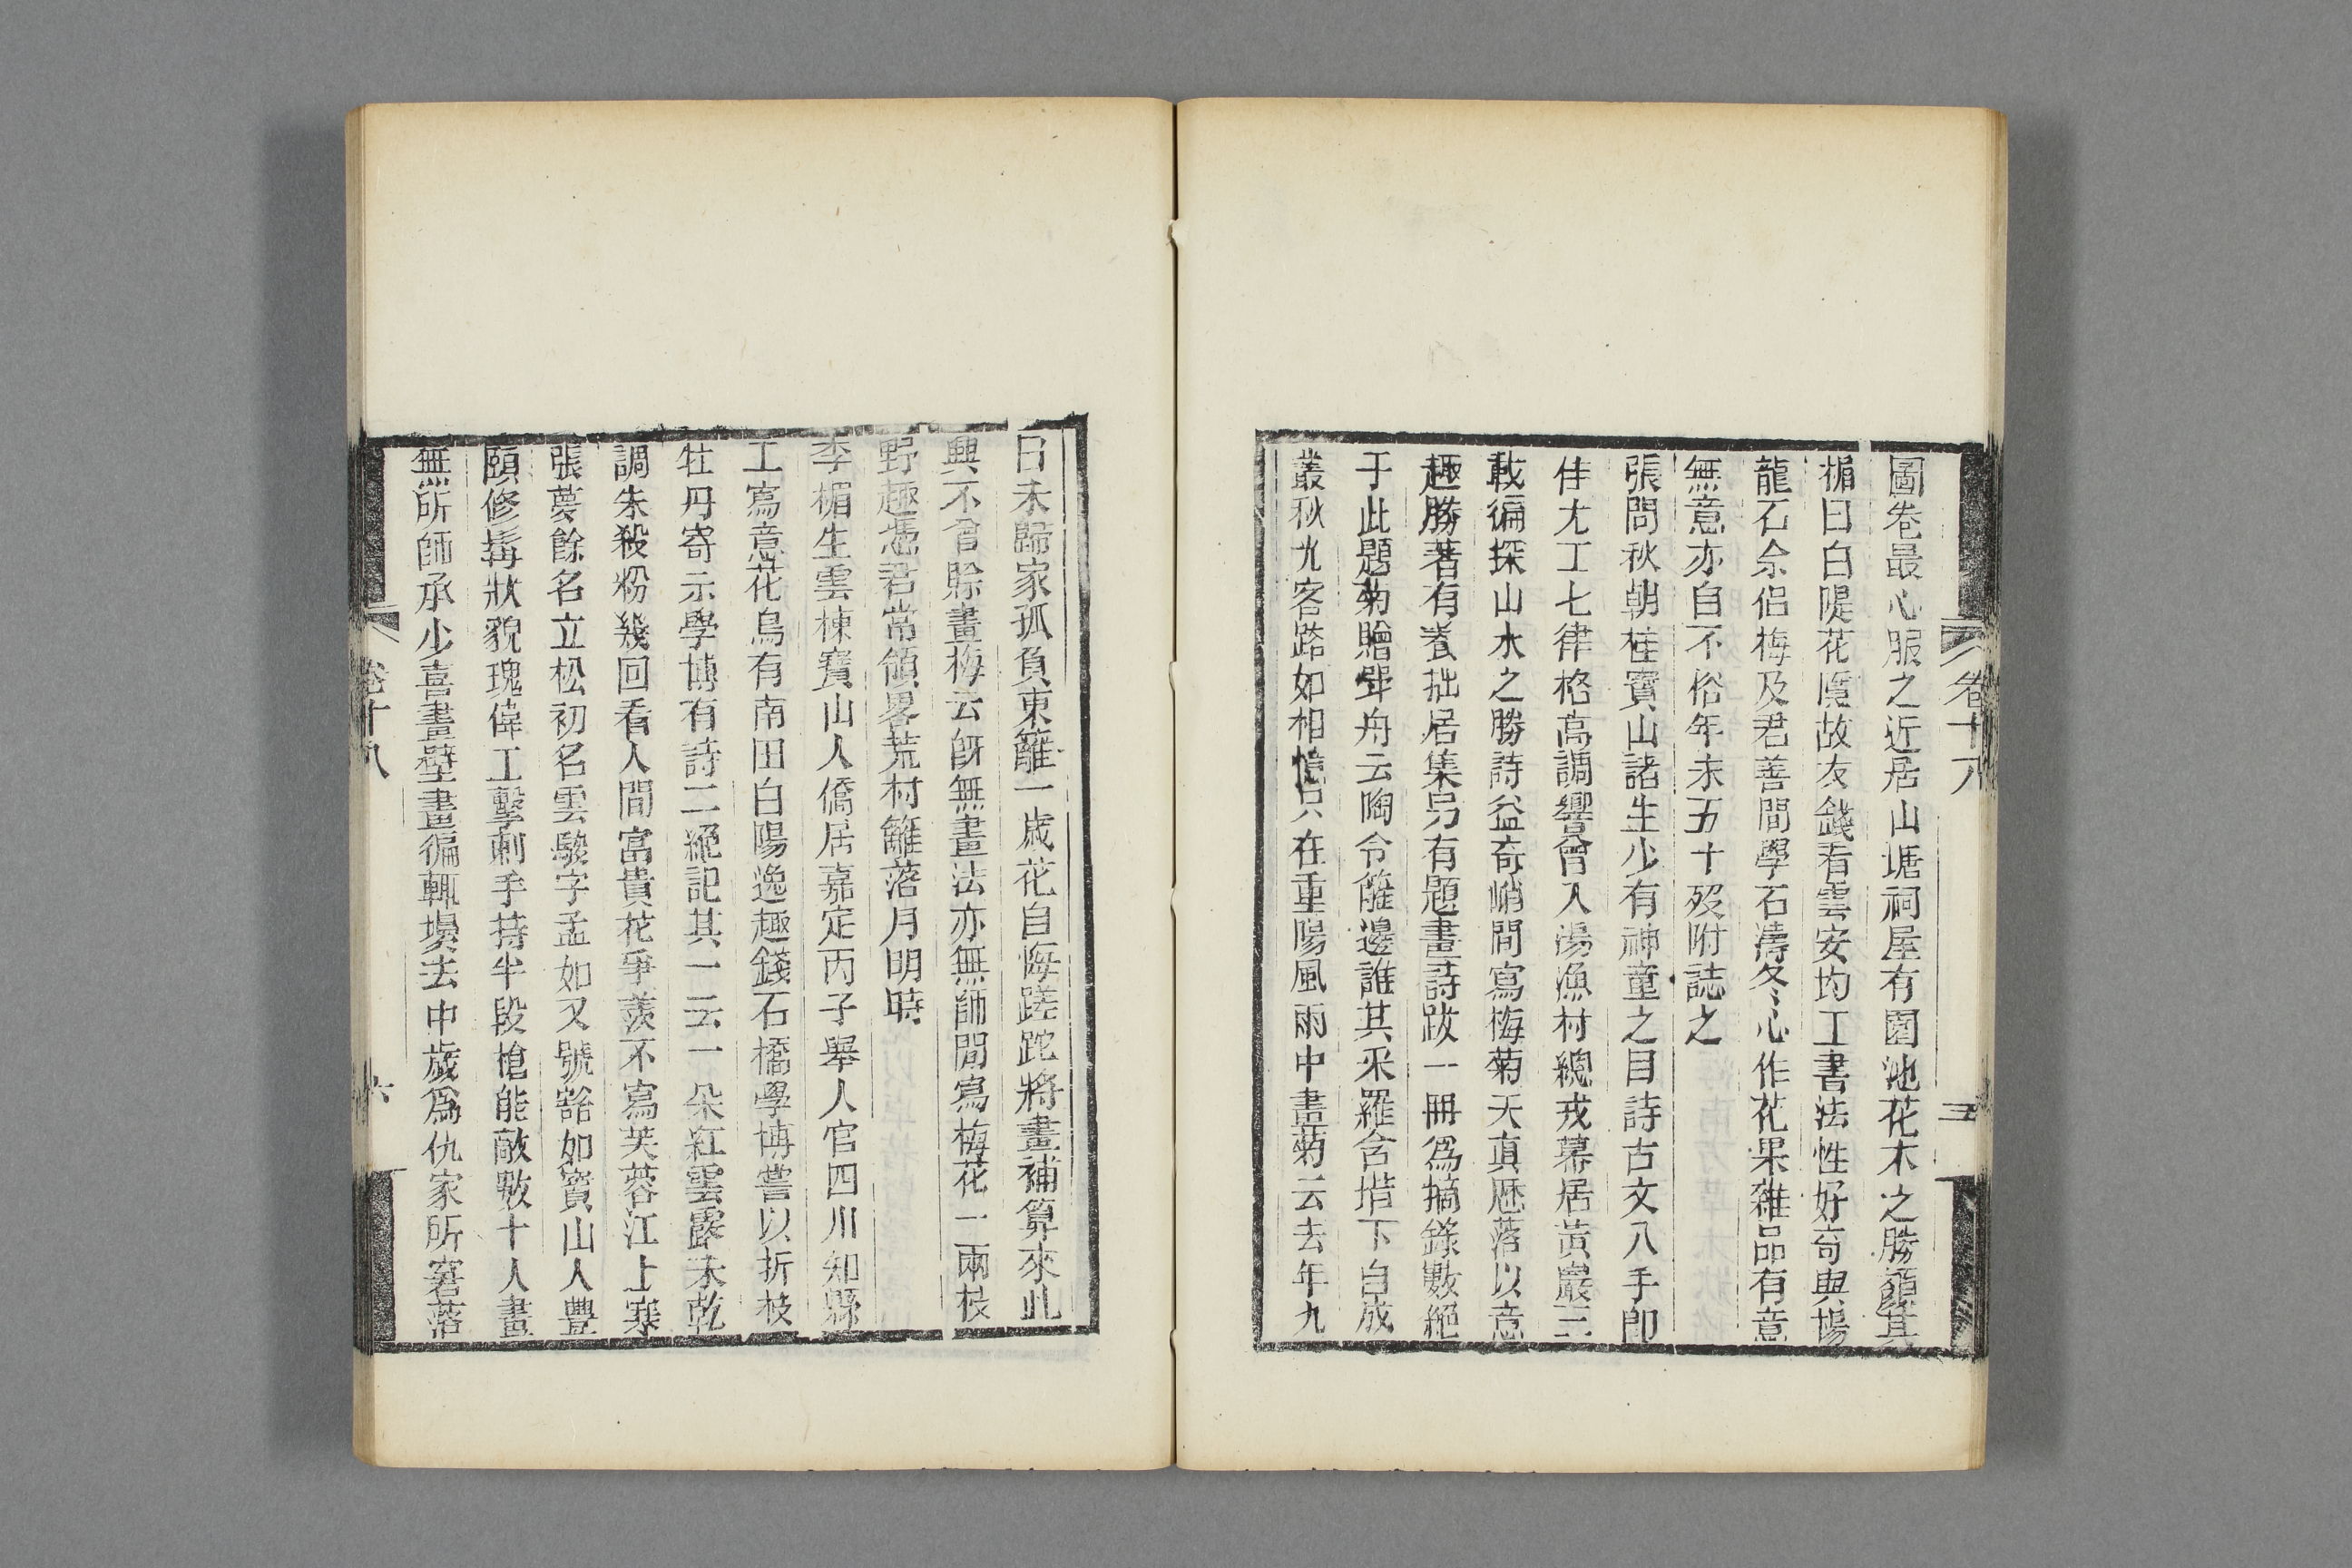 卷十八
五
圖卷最心服之近居山塘祠屋有園池花木之勝顔其
楣曰白隄花隱故友錢看雲安均工書法性好奇與塲
龍石余侶梅及君善間學石濤冬心作花果雜品有意
無意亦自不俗年未五十歿附誌之
張問秋朝桂寶山諸生少有神童之目詩古文入手即
佳尤工七律格高調響曾入湯漁村總戎幕居黃巖三
載徧探山水之勝詩益奇峭間寫梅菊天真歷落以意
趣勝著有養拙居集另有題畫詩跋一冊爲摘錄數絕
于此題菊贈聲舟云陶令籬邊誰其采羅含堦下自成
叢秋光客路如相憶只在重陽風雨中畫菊云去年九
日未歸家孤負東籬一歲花自悔蹉跎將畫補算來此
興不曾賒畫梅云旣無畫法亦無師閒寫梅花一兩枝
野趣憑君常領畧荒村籬落月明時
李楣生雲棟寶山人僑居嘉定丙子舉人官四川知縣
工寫意花鳥有南田白陽逸趣錢石橋學博嘗以折枝
牡丹寄示學博有詩二絕記其一云一朵紅雲露未乾
調朱殺粉幾回看人間富貴花爭羨不寫芙蓉江上寒
張夢餘名立松初名雲駿字孟如又號谿如寶山人豐
頤修髯狀貌瑰偉工擊刺手持半段槍能敵數十人畫
無所師承少喜畫壁畫徧輒塓去中歲爲仇家所窘落
卷十八
六